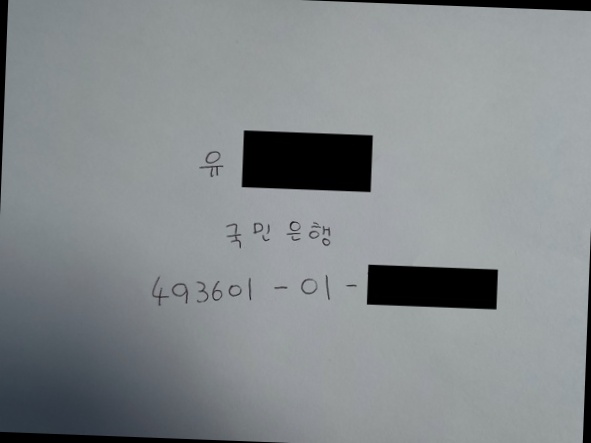 유
국민은행
493601 - 01 -